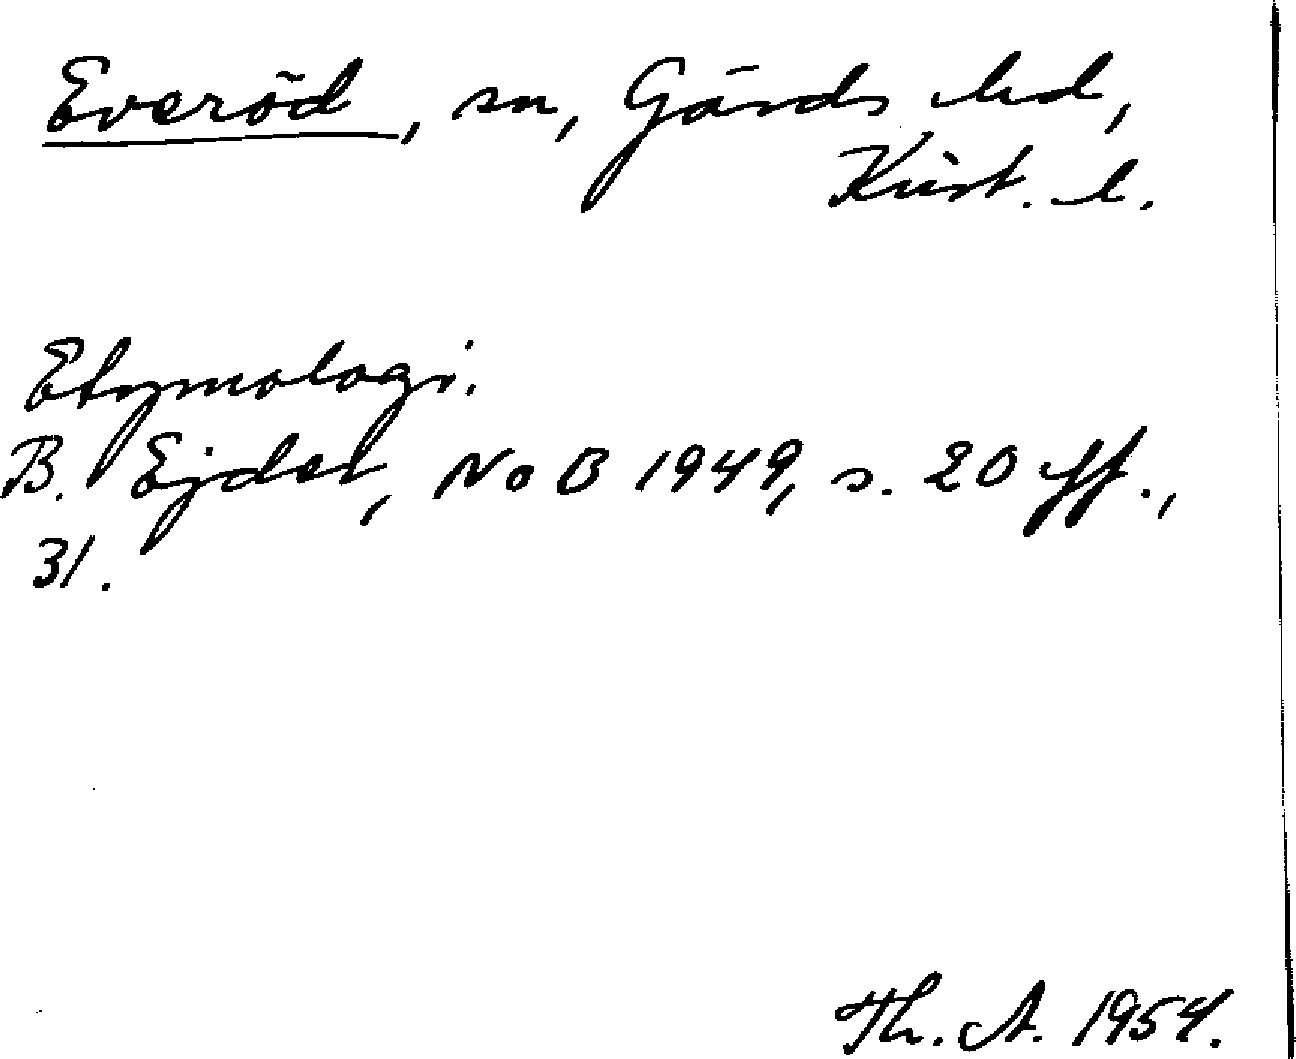 Everöd, sn, Gärds hd,
Krist. l.
Etymologi.
B. Ejder, NoB 1949, s. 20 ff.,
31.
Th. A. 1954.